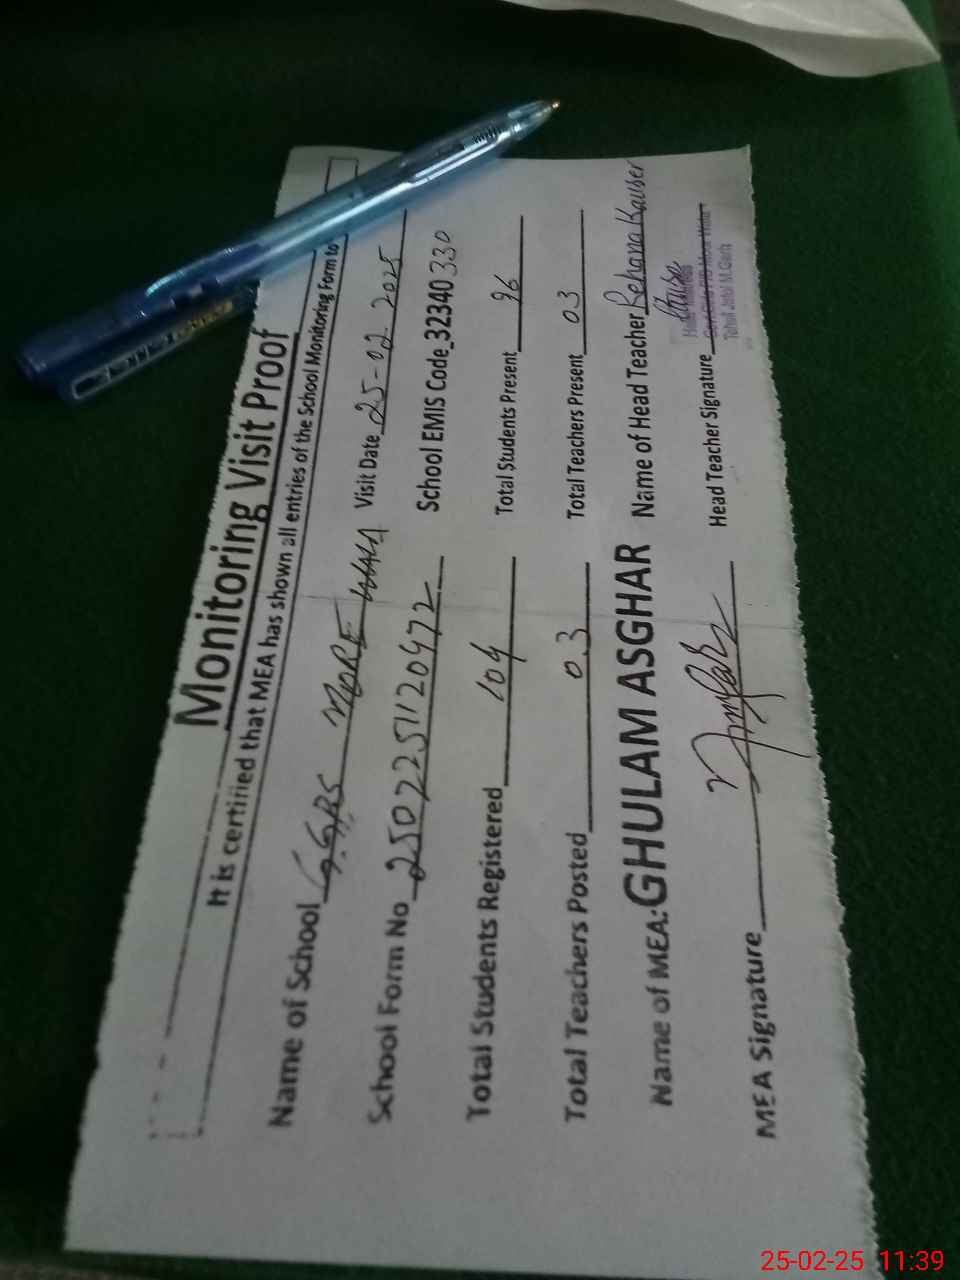 Monitoring Visit Proof
It is certified that MEA has shown all entries of the School Monitoring Form to
Name of School G.G.P.S MORE WALA Visit Date 25-02-2025
School Form No 2502251120472 School EMIS Code 32340330
Total Students Registered 104 Total Students Present 96
Total Teachers Posted 03 Total Teachers Present 03
Name of MEA: GHULAM ASGHAR Name of Head Teacher Rehana Kauser
MEA Signature Head Teacher Signature
Tehsil Jatoi M.Garh
25-02-25 11:39